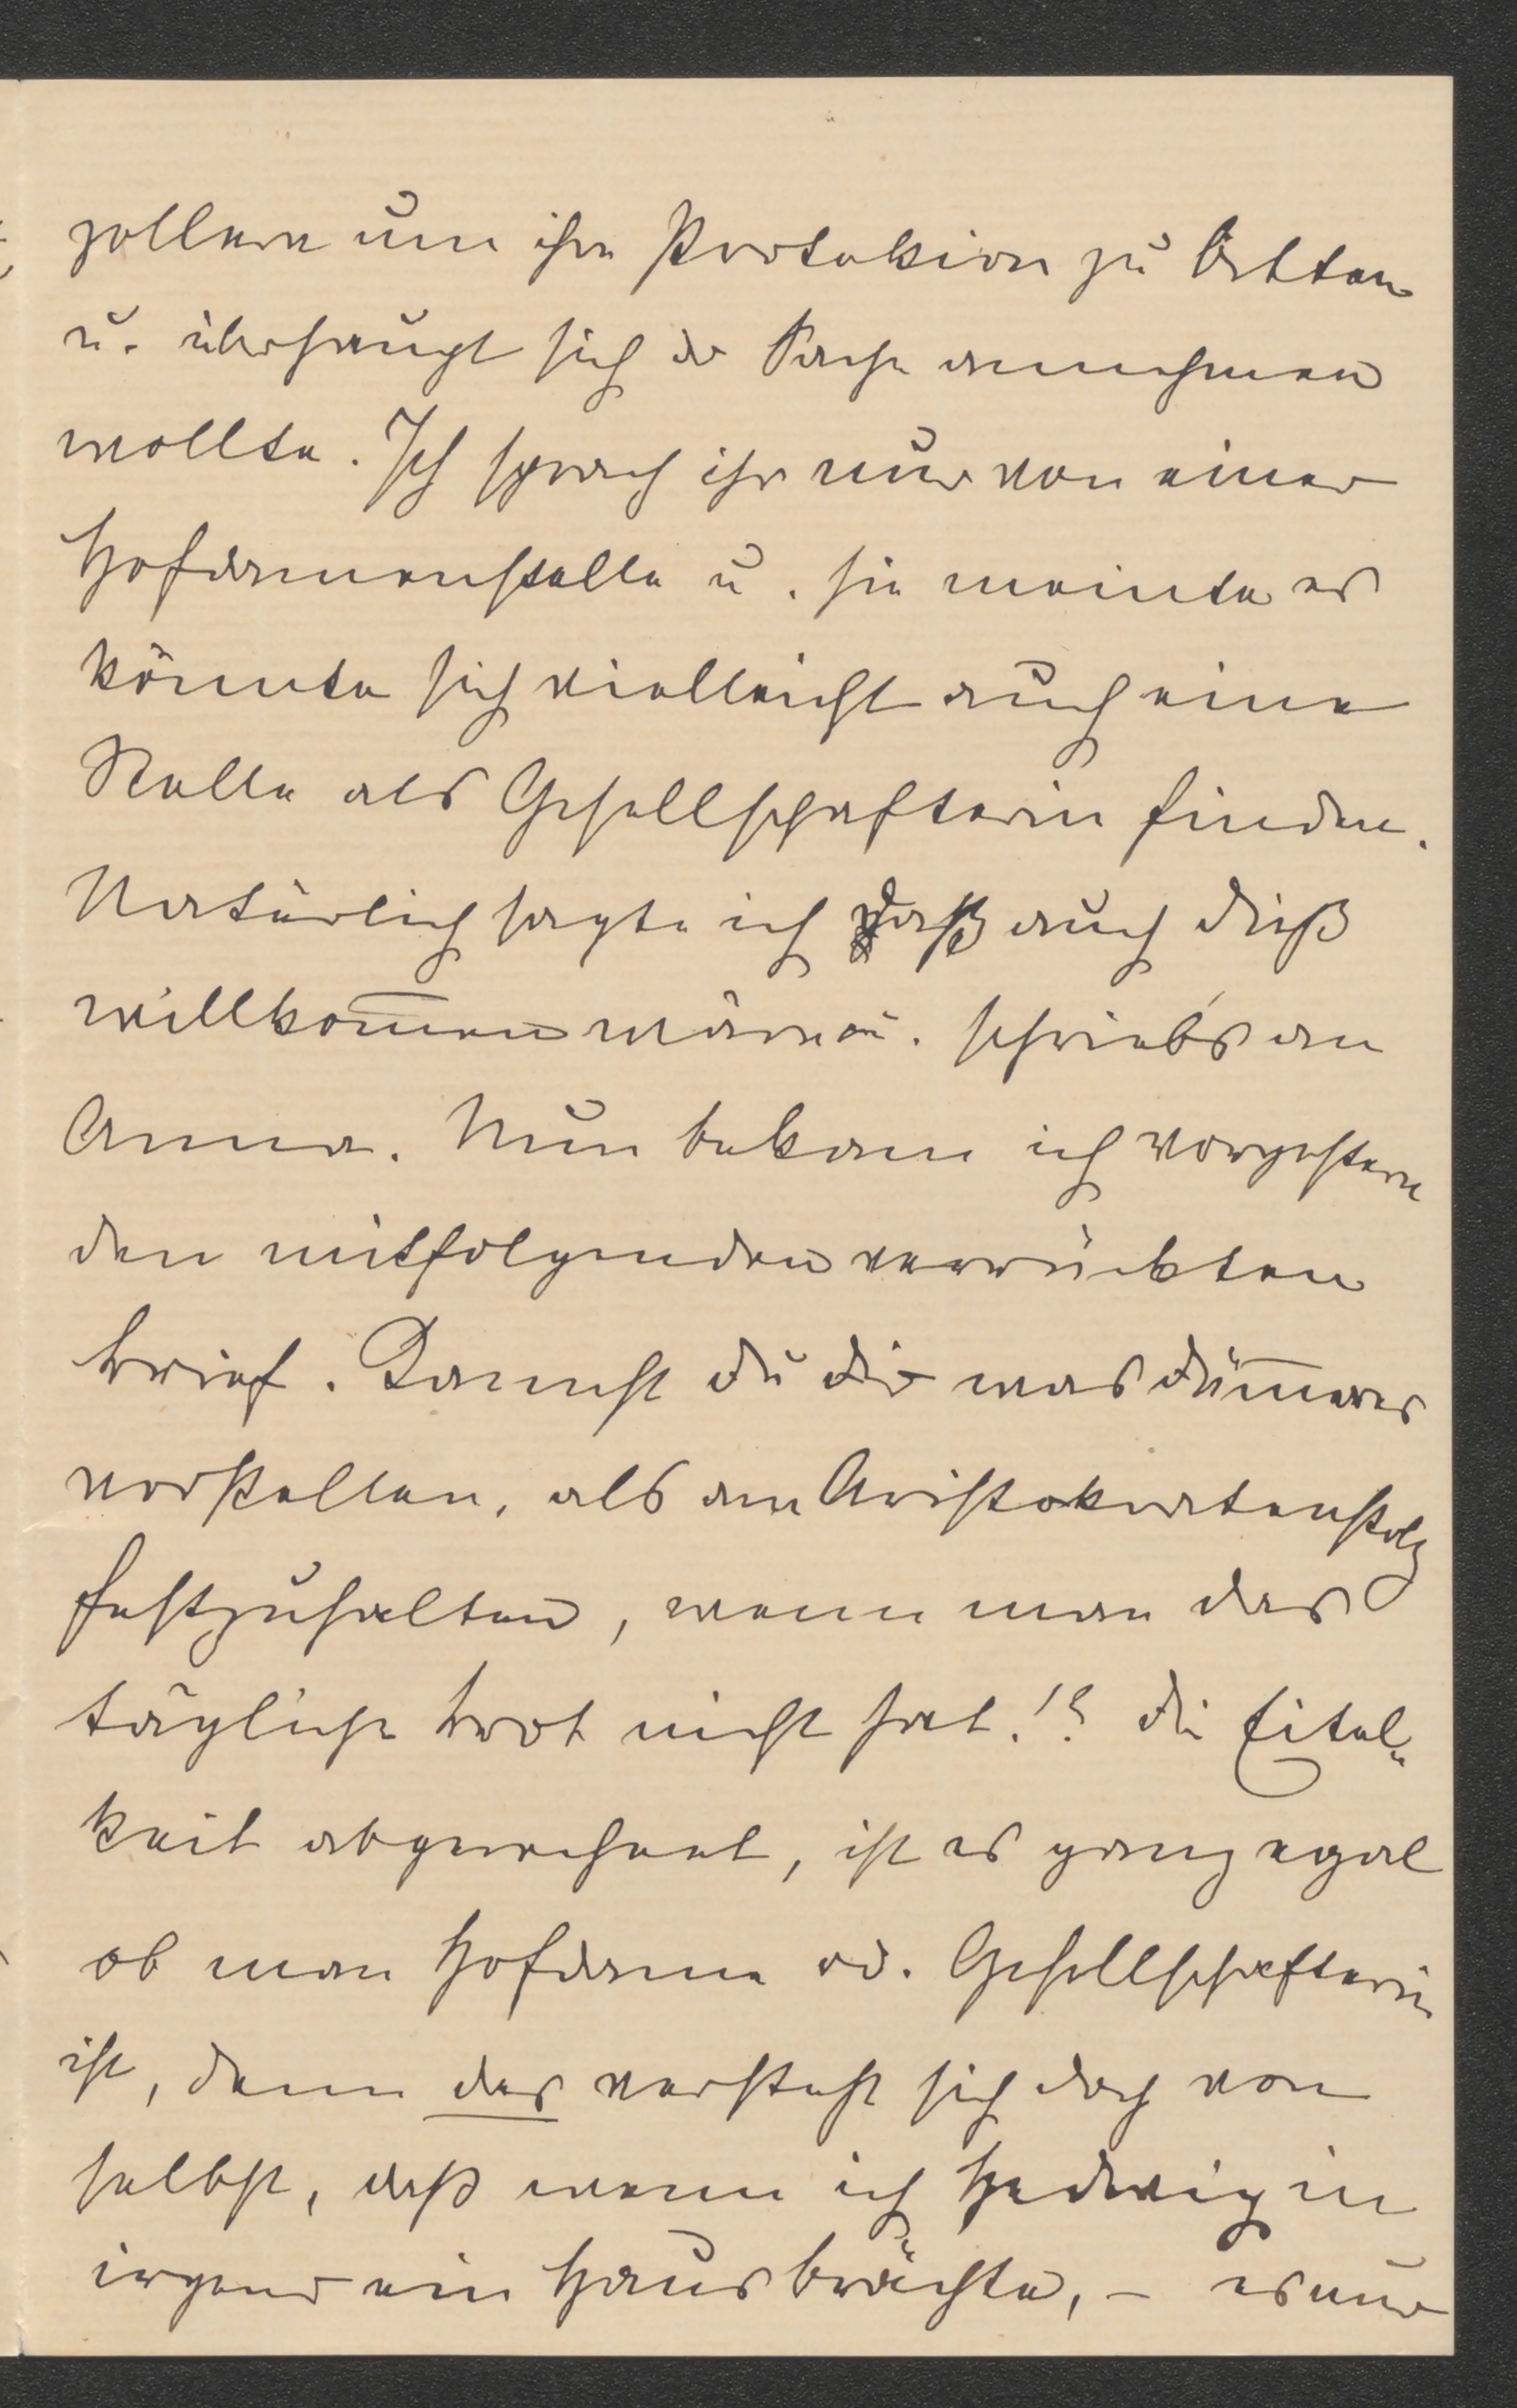 zollern um ihre Protektion zu bitten
u. überhaupt sich der Sache annehmen
wollte. Ich sprach ihr nur von einer
Hofdamenstelle u. sie meinte es
könnte sich vielleicht auch eine
Stelle als Gesellschafterin finden.
Natürlich sagte ich daß auch dieß
willkom̅en wäre u. schrieb's an
Anna. Nun bekam ich vorgestern
den mitfolgenden verrückten
Brief. Kannst du dir was düm̅eres
vorstellen, als am Aristokratenstolz
festzuhalten, wenn man das
tägliche Brot nicht hat!? Die Eitel-
keit abgerechnet, ist es ganz egal
ob man Hofdame od. Gesellschafterin
ist, denn das versteht sich doch von
selbst, daß wenn ich Hedwig in
irgend ein Haus brächte, – es nur